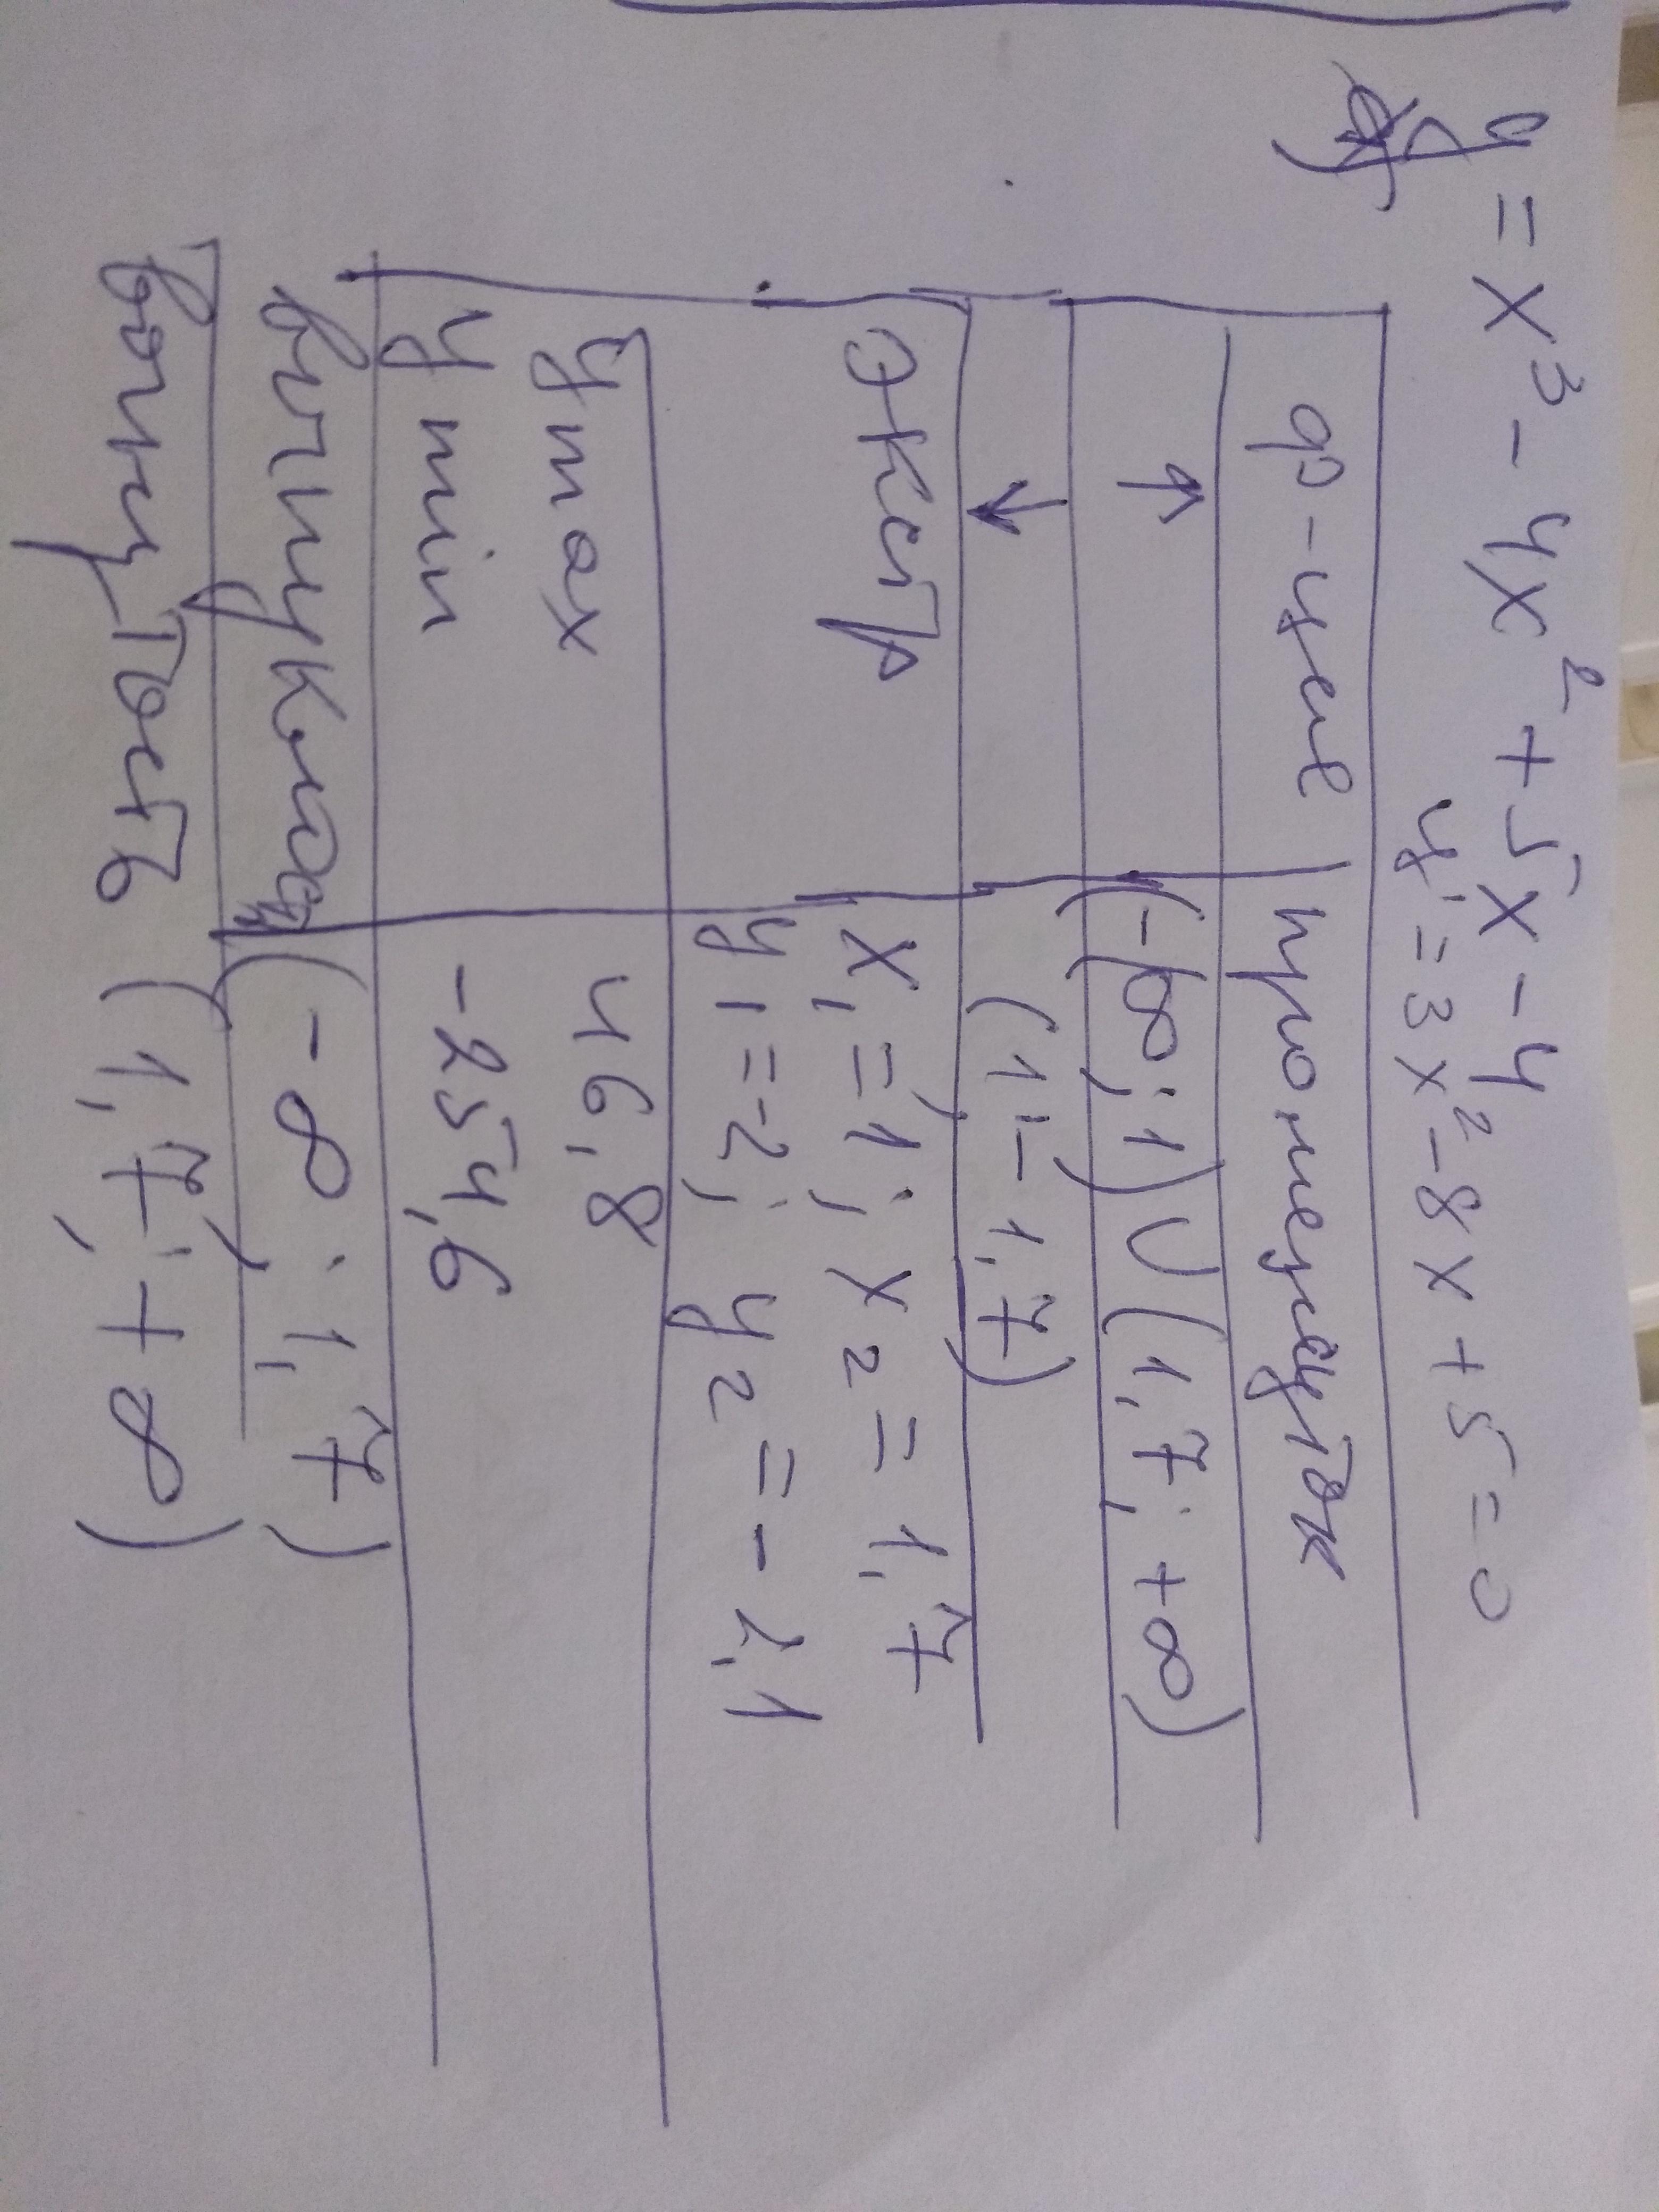 y = x³ - 4x² + 5x - 4
y' = 3x² - 8x + 5 = 0
промежуток
↑ (-∞; 1) ∪ (1,7; +∞)
↓ (1; - 1,7)
экстр x₁ = 1; x₂ = 1,7
y₁ = -2; y₂ = - 2,1
y max 46,8
y min -254,6
выпуклость (-∞; 1,7)
вогнутость (1,7; +∞)